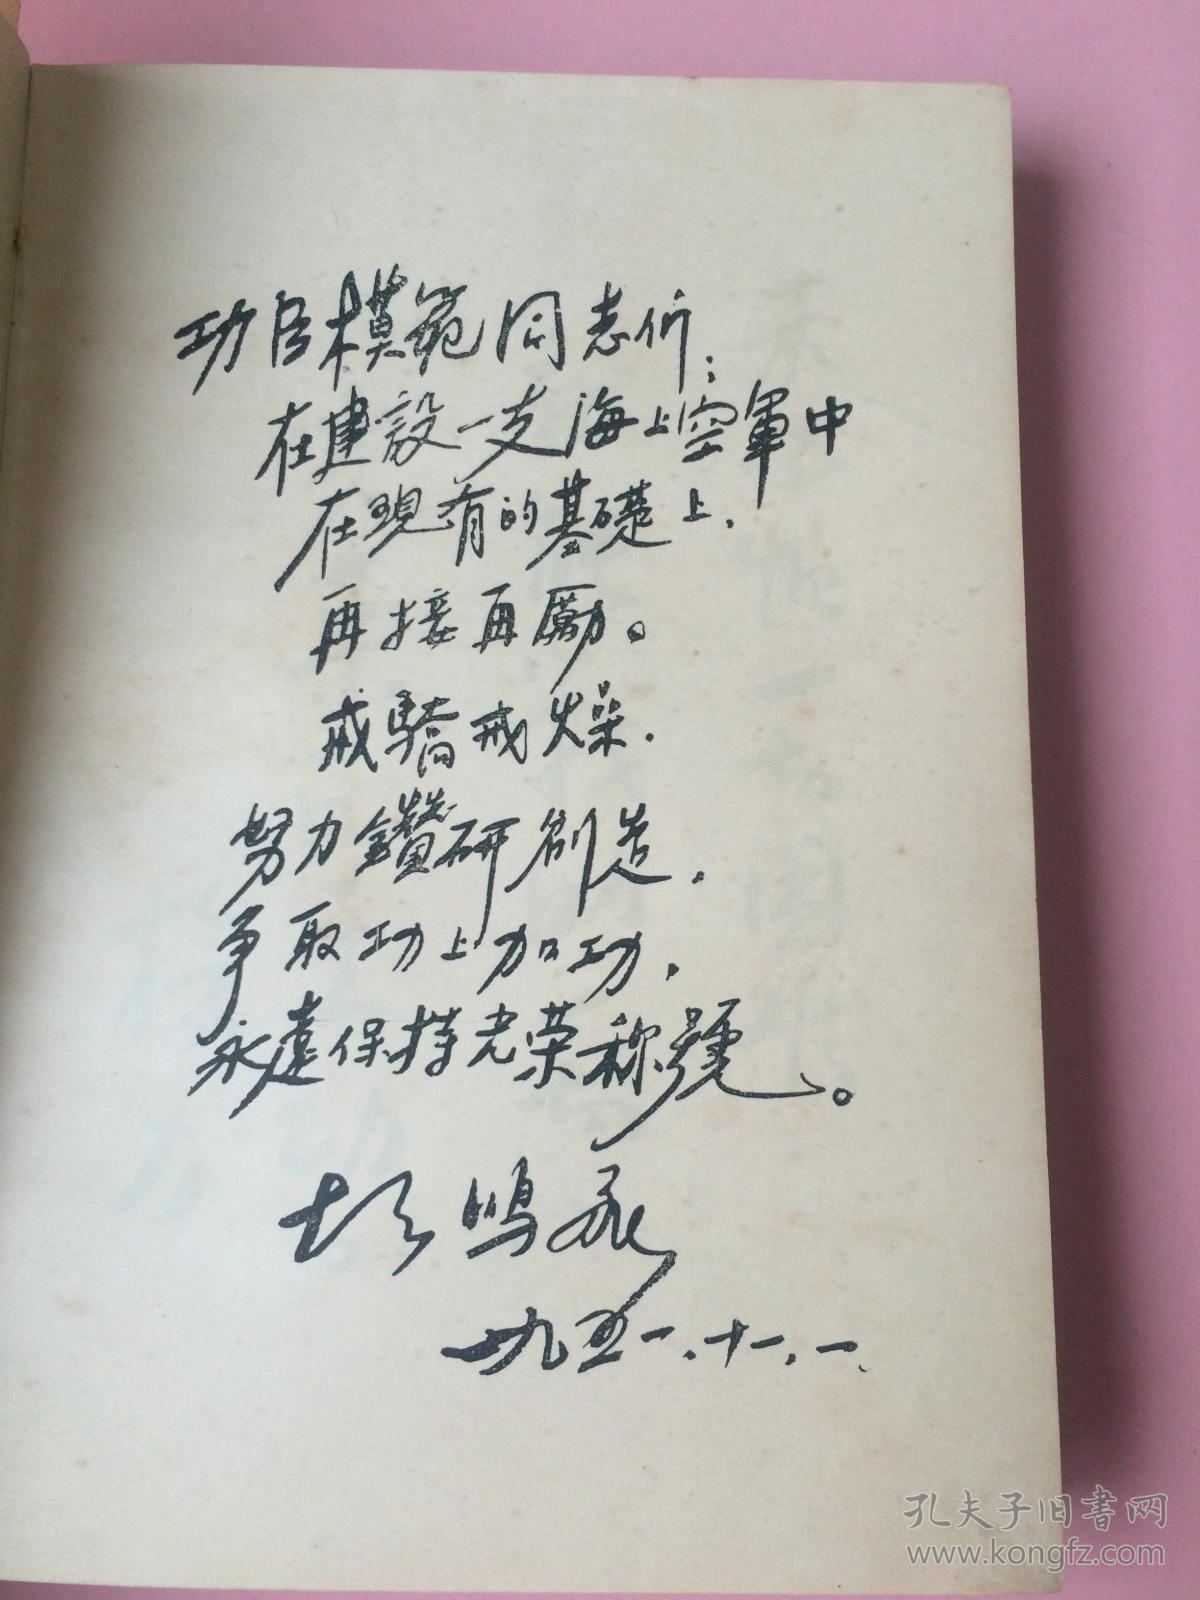 功臣模範同志们：
在建設一支海上空軍中
在現有的基礎上．
再接再勵。
戒驕戒燥．
努力鑽研創造．
争取功上加功．
永遠保持光荣称號。
鳴
一九五一．十一．一
孔夫子旧書网
www.kongfz.com